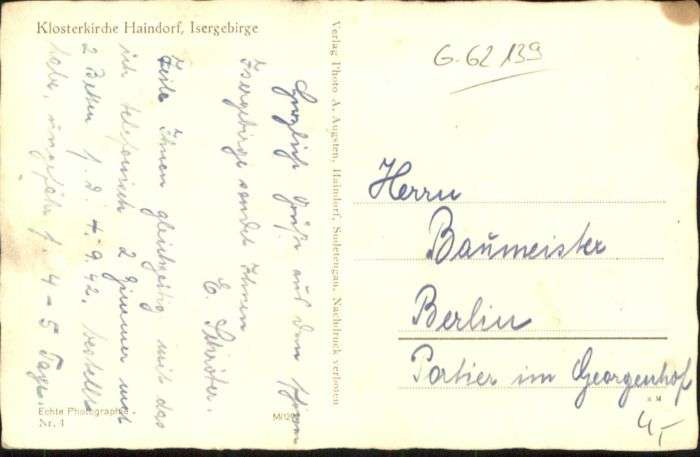 Klosterkirche Haindorf, Isergebirge
Herzliche Grüße aus dem schönen
Isergebirge sendet Ihnen
E. Schröter.
Teile Ihnen gleichzeitig mit das
ich telefonisch 2 Zimmer mit
2 Betten f. d. 4.9.42. bestellt
habe, ungefähr f. 4-5 Tage.
Echte Photographie
Nr. 4
Verlag Photo A. Augsten, Haindorf, Sudetengau, Nachdruck verboten
G. 62 139
Herrn
Baumeister
Berlin
Portier im Georgenhof
4,-